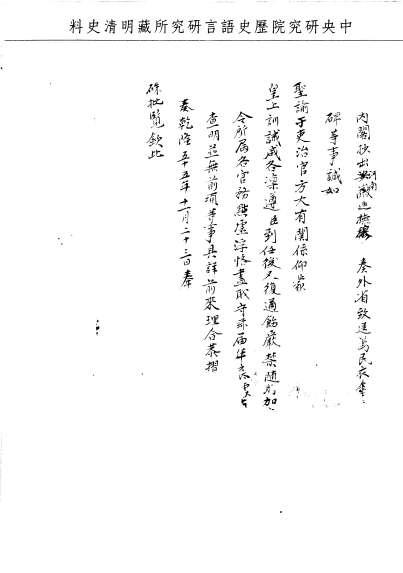 中央研究院歷史語言研究所藏明清史料
內閣抄出河南巡撫穆 奏外省致送萬民衣傘
碑等事誠如
聖諭于吏治官方大有關係仰蒙
皇上訓誡咸各凜遵臣到任後又復通飭嚴禁隨加
令所屬各官務點虛浮盡職守
查明並無前項等事具詳前來理合恭摺
奏乾隆五十五年十一月二十三日奉
硃批覽欽此